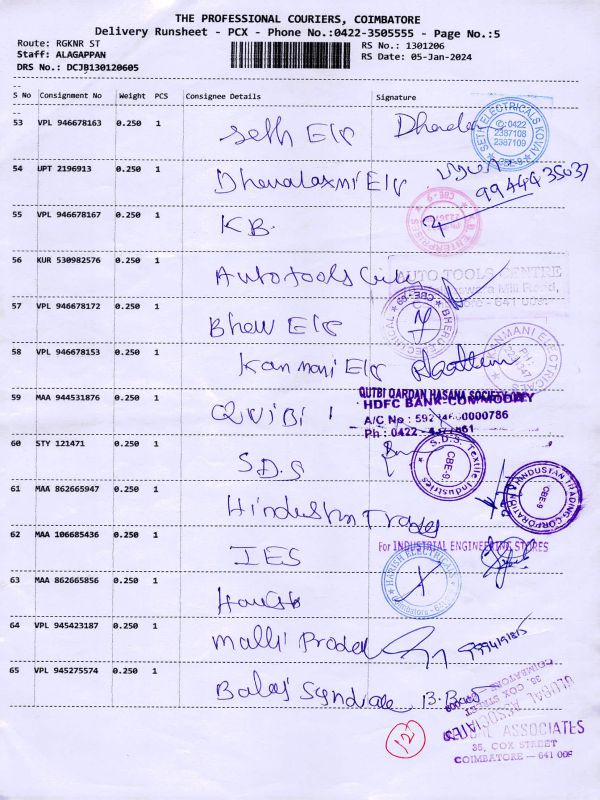 THE PROFESSIONAL COURIERS, COIMBATORE
Delivery Runsheet - PCX - Phone No.:0422-3505555 - Page No.:5
Route: RGKNR ST
RS No.: 1301206
Staff: ALAGAPPAN
RS Date: 05-Jan-2024
DRS No.: DCJB130120605
S No Consignment No Weight PCS Consignee Details Signature
53 VPL 946678163 0.250 1 Seth Elc
SETH ELECTRICALS KOVAI
0422
2387108
2387109
CBE-9
54 UPT 2196913 0.250 1 Dhenalaxmi Elc
55 VPL 946678167 0.250 1 KB.
ENTERPRISES
CBE-9
56 KUR 530982576 0.250 1 Autotools
AUTO TOOLS CENTRE
Mill Road,
57 VPL 946678172 0.250 1 Bheru Elc
BHERU ELECTRICAL
CBE-9
58 VPL 946678153 0.250 1 Kanmani Elc
KANMANI ELECTRICALS
PH:
59 MAA 944531876 0.250 1
QUTBI QARDAN HASANA SOCIETY
HDFC BANK-COMMODITY
A/C No :
0000786
Ph : 0422 -
60 STY 121471 0.250 1 S.D.S
S.D.S. Textile Industries
CBE-9.
61 MAA 862665947 0.250 1 Hindustan Trades
HINDUSTAN TRADING CORPORATION
CBE-9
62 MAA 106685436 0.250 1 IES
For INDUSTRIAL ENGINEERING STORES
63 MAA 862665856 0.250 1
HARISH ELECTRICALS
Coimbatore - 9
64 VPL 945423187 0.250 1 Malli
65 VPL 945275574 0.250 1 Balaji Syndicate
12
GLOBAL ASSOCIATES
35, COX STREET
COIMBATORE
ASSOCIATES
35, COX STREET
COIMBATORE - 641 009